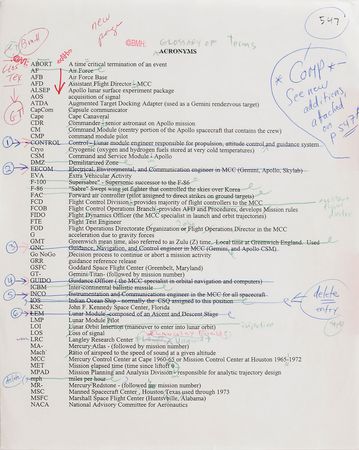 547
new page
GLOSSARY OF Terms
ACRONYMS
ABORT A time critical termination of an event
AF Air Force
AFB Air Force Base
AFD Assistant Flight Director - MCC
ALSEP Apollo lunar surface experiment package
AOS acquisition of signal
ATDA Augmented Target Docking Adapter (used as a Gemini rendezvous target)
CapCom Capsule communicator
CDR Commander - senior astronaut on mission
CM Command Module (reentry portion of the Apollo spacecraft that contains the crew)
CMP command module pilot
1 CONTROL Control - Lunar module engineer responsible for propulsion, attitude control and guidance system.
Cryo Cryogenic (oxygen and hydrogen fuels stored at very cold temperatures)
CSM Command and Service Module - Apollo
DMZ Demilitarized Zone
2 EECOM Electrical, Environmental, and Communication engineer in MCC (Gemini, Apollo, Skylab)
EVA Extra Vehicular Activity
F-100 Supersabre - Supersonic successor to the F-86
F-86 "Sabre" Swept wing jet fighter that controlled the skies over Korea
FAC Forward air controller (pilot assigned to direct strikes on ground targets)
FCD Flight Control Division - provides majority of flight controllers to the MCC
FCOB Flight Control Operations Branch - provides AFD and Procedures, develops Mission rules
FIDO Flight Dynamics Officer (the MCC specialist in launch and orbit trajectories)
FTE Flight Test Engineer
FOD Flight Operations Directorate Organization or Flight Operations Director in the MCC
acceleration due to gravity forces
GMT Greenwich mean time, also referred to as Zulu (Z) time. Local time at Greenwich England. Used
3 Guidance, Navigation, and Control engineer in MCC (Gemini, and Apollo CSM).
Go NoGo Decision process to continue or abort a mission activity
GRR guidance reference release
GSFC Goddard Space Flight Center (Greenbelt, Maryland)
GT- Gemini-Titan - (followed by mission number)
4 GUIDO Guidance Officer (the MCC specialist in orbital navigation and computers)
ICBM Intercontinental ballistic missile
5 INCO Instrumentation and Communications engineer in the MCC for all spacecraft.
IOS Indian Ocean Ship - normally the CSQ assigned to this position
KSC John F. Kennedy Space Center, Florida
6 LEM Lunar Module composed of an Ascent and Descent Stage
LMP Lunar Module Pilot
LOI Lunar Orbit Insertion (maneuver to enter into lunar orbit)
LOS Loss of signal
LRC Langley Research Center
MA- Mercury-Atlas - (followed by mission number)
Mach Ratio of airspeed to the speed of sound at a given altitude
MCC Mercury Control Center at Cape 1960-65 or Mission Control Center at Houston 1965-1972
MET Mission elapsed time (time since liftoff)
MPAD Mission Planning and Analysis Division - responsible for analytic trajectory design
mph miles per hour
MR- Mercury-Redstone - (followed by mission number)
MSC Manned Spacecraft Center, Houston Texas used through 1973
MSFC Marshall Space Flight Center (Huntsville, Alabama)
NACA National Advisory Committee for Aeronautics
* Comp *
See new additions attached on p 547A
delete entry